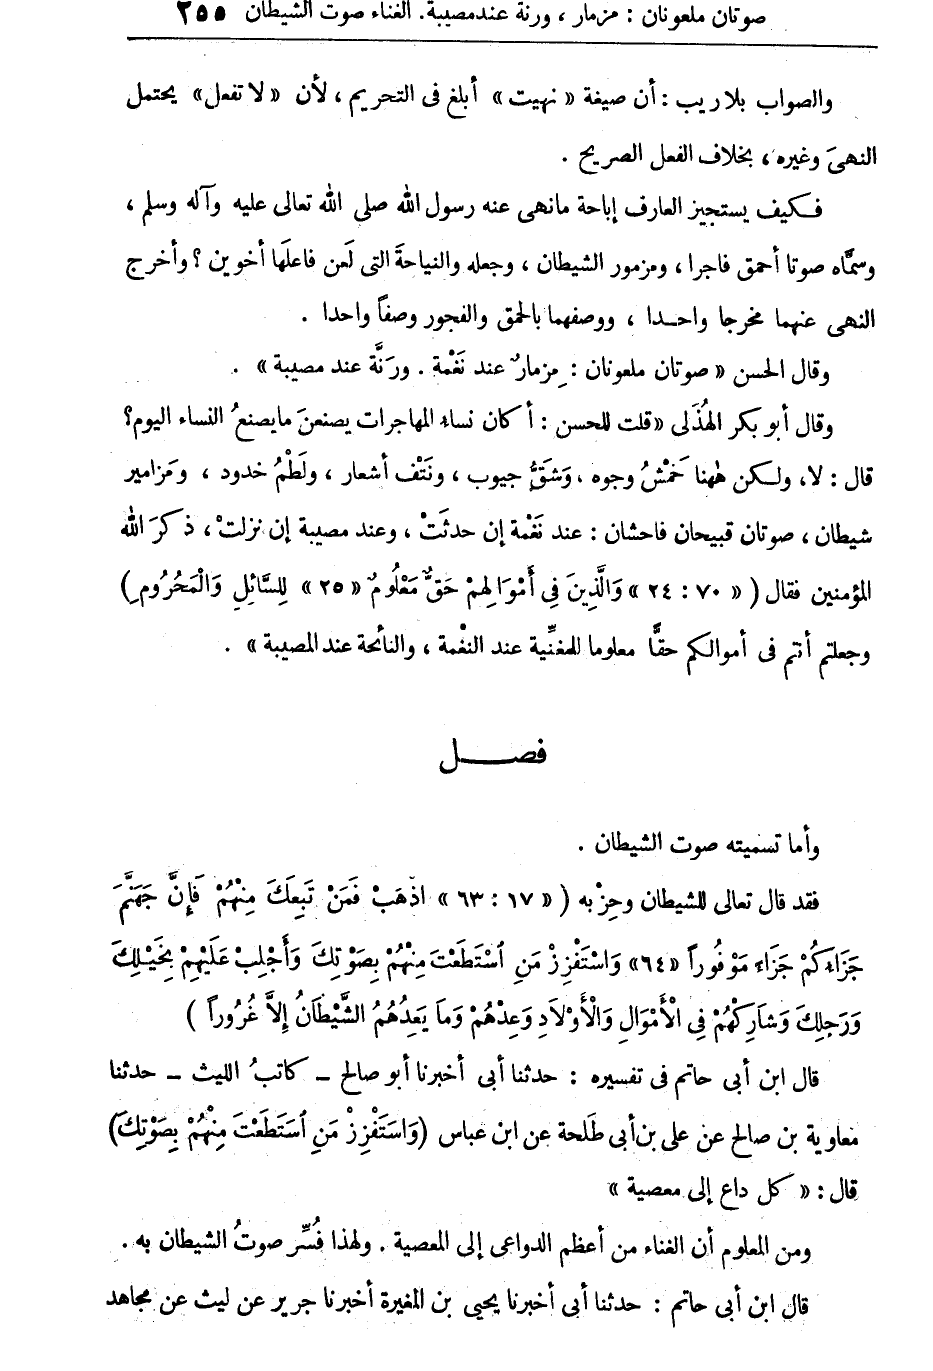 صوتان ملعونان : مزمار ، ورنة عند مصيبة. الغناء صوت الشيطان ٢٥٥
والصواب بلا ريب : أن صيغة « نهيت » أبلغ فى التحريم ، لأن « لا تفعل » يحتمل
النهىَ وغيره ، بخلاف الفعل الصريح .
فكيف يستجيز العارف إباحة ما نهى عنه رسول الله صلى الله تعالى عليه وآله وسلم ،
وسمَّاه صوتا أحمق فاجرا ، ومزمور الشيطان ، وجعله والنياحةَ التى لَعن فاعلَها أخوين ؟ وأخرج
النهى عنهما مخرجا واحدا ، ووصفهما بالحمق والفجور وصفاً واحدا .
وقال الحسن « صوتان ملعونان : مِزمارٌ عند نَغْمة . ورَنَّة عند مصيبة » .
وقال أبو بكر الهُذَلى « قلت للحسن : أكان نساء المهاجرات يصنعنَ ما يصنعُ النساء اليوم؟
قال : لا، ولكن هٰهنا خَمْشُ وجوه ، وَشَقُّ جيوب ، ونَتْف أشعار ، ولَطْمُ خدود ، ومَزامير
شيطان ، صوتان قبيحان فاحشان : عند نَغْمة إن حدثَتْ ، وعند مصيبة إن نزلتْ ، ذكرَ الله
المؤمنين فقال ( « ٧٠ : ٢٤ » وَالَّذِينَ فِي أَمْوَالِهِمْ حَقٌّ مَعْلُومٌ « ٢٥ » لِلسَّائِلِ وَالْمَحْرُومِ )
وجعلتم أنتم فى أموالكم حقًّا معلوما للمغنِّية عند النغْمة ، والنائحة عند المصيبة » .
فصل
وأما تسميته صوت الشيطان .
فقد قال تعالى للشيطان وحِزْبه ( « ١٧ : ٦٣ » اذْهَبْ فَمَنْ تَبِعَكَ مِنْهُمْ فَإِنَّ جَهَنَّمَ
جَزَاءكُمْ جَزَاء مَوْفُوراً «٦٤» وَاسْتَفْزِزْ مَنِ اسْتَطَعْتَ مِنْهُمْ بِصَوْتِكَ وَأَجْلِبْ عَلَيْهِمْ بِخَيْلِكَ
وَرَجِلِكَ وَشَارِكْهُمْ فِي الْأَمْوَالِ وَالْأَوْلَادِ وَعِدْهُمْ وَمَا يَعِدُهُمُ الشَّيْطَانُ إِلاَّ غُرُوراً )
قال ابن أبى حاتم فى تفسيره : حدثنا أبى أخبرنا أبو صالح ــ كاتبُ الليث ــ حدثنا
معاوية بن صالح عن على بن أبى طَلحة عن ابن عباس (وَاسْتَفْزِزْ مَنِ اسْتَطَعْتَ مِنْهُمْ بِصَوْتِكَ)
قال : « كل داع إلى معصية »
ومن المعلوم أن الغناء من أعظم الدواعى إلى المعصية . ولهذا فُسِّر صوتُ الشيطان به .
قال ابن أبى حاتم : حدثنا أبى أخبرنا يحيى بن المغيرة أخبرنا جرير عن ليث عن مجاهد